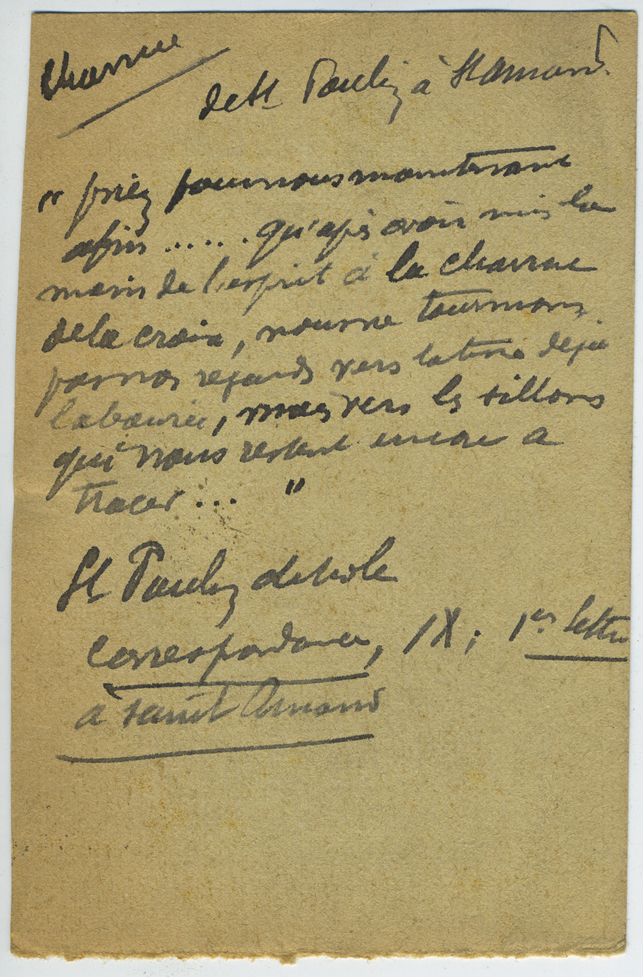 Charrue
de St Paulin à St Amand.
" priez pour nous maintenant
afin ...... qu'après avoir mis la
main de l'esprit à la charrue
de la croix, nous ne tournions
pas nos regards vers la terre déjà
labourée, mais vers les sillons
qui nous restent encore à
tracer ... "
St Paulin de Nole
Correspondance, IX; 1re lettre
à saint Amand